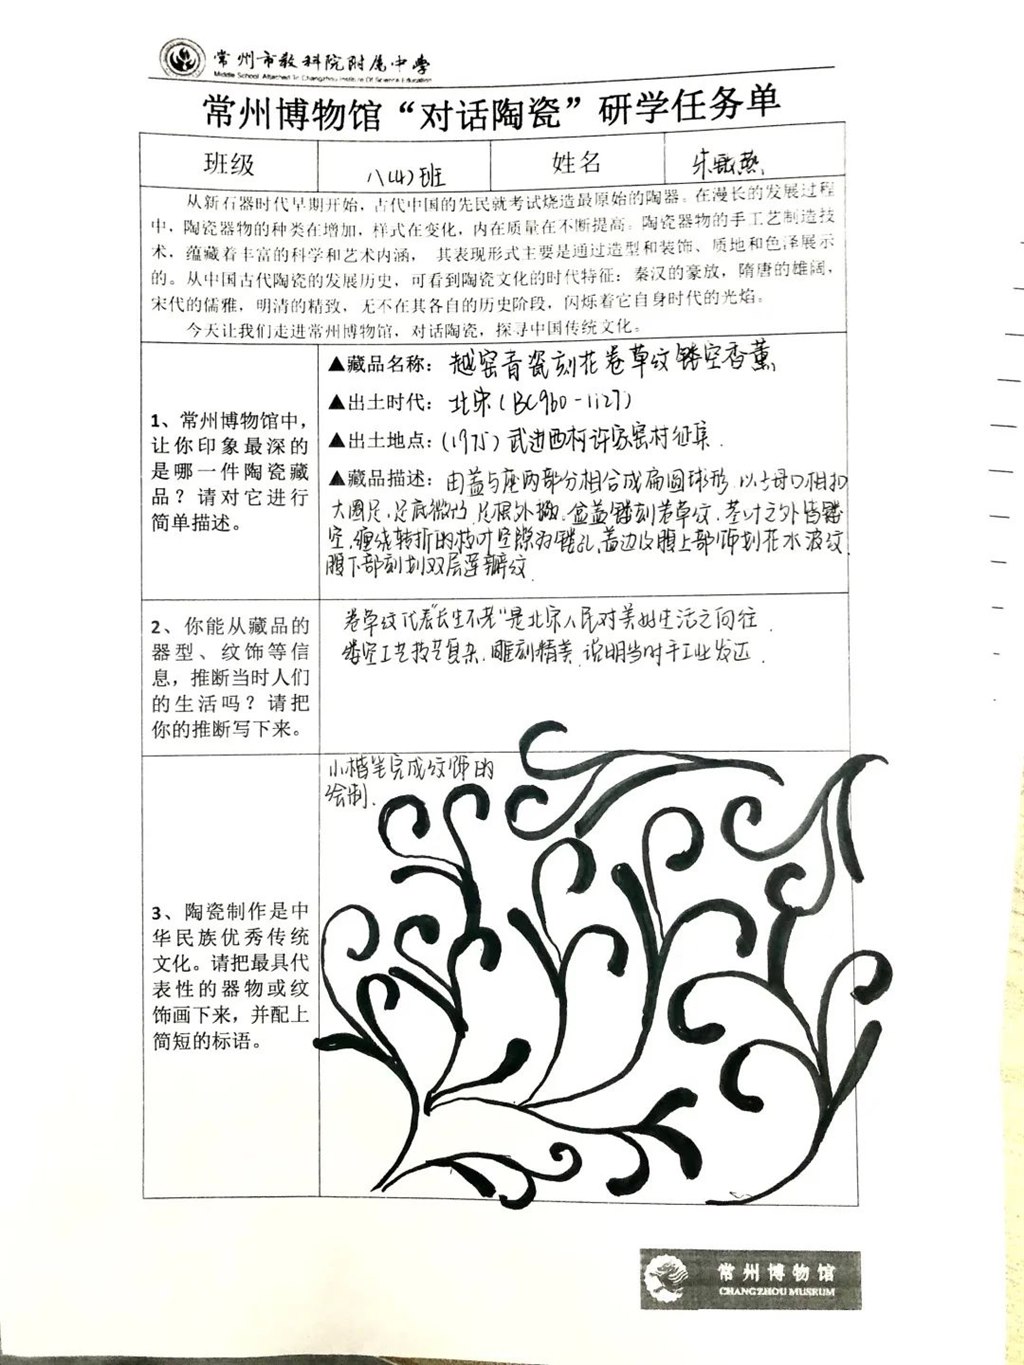 常州市教科院附属中学
Middle School Attached To Changzhou Institute Of Science Education
常州博物馆“对话陶瓷”研学任务单
班级 八(4)班 姓名 朱 燕
从新石器时代早期开始，古代中国的先民就考试烧造最原始的陶器。在漫长的发展过程
中，陶瓷器物的种类在增加，样式在变化，内在质量在不断提高。陶瓷器物的手工艺制造技
术，蕴藏着丰富的科学和艺术内涵， 其表现形式主要是通过造型和装饰、质地和色泽展示
的。从中国古代陶瓷的发展历史，可看到陶瓷文化的时代特征：秦汉的豪放，隋唐的雄阔，
宋代的儒雅，明清的精致，无不在其各自的历史阶段，闪烁着它自身时代的光焰。
今天让我们走进常州博物馆，对话陶瓷，探寻中国传统文化。
1、常州博物馆中，
让你印象最深的
是哪一件陶瓷藏
品？请对它进行
简单描述。
▲藏品名称：越窑青瓷刻花卷草纹镂空香薰
▲出土时代：北宋(BC960-1127)
▲出土地点：(1975)武进西柯许家窑村征集.
▲藏品描述：由盖与座两部分相合成扁圆球形.以子母口相扣
大圈足,足底微凸,足根外撇.盒盖镂刻卷草纹.茎叶之外皆镂
空.缠绕转折的枝叶空隙为镂孔,盖边及腹上部饰划花水波纹
腹下部刻划双层莲瓣纹.
2、你能从藏品的
器型、纹饰等信
息，推断当时人们
的生活吗？请把
你的推断写下来。
卷草纹代表“长生不老”是北宋人民对美好生活之向往.
镂空工艺技艺复杂.雕刻精美.说明当时手工业发达.
3、陶瓷制作是中
华民族优秀传统
文化。请把最具代
表性的器物或纹
饰画下来，并配上
简短的标语。
小楷笔完成纹饰的
绘制.
常州博物馆
CHANGZHOU MUSEUM